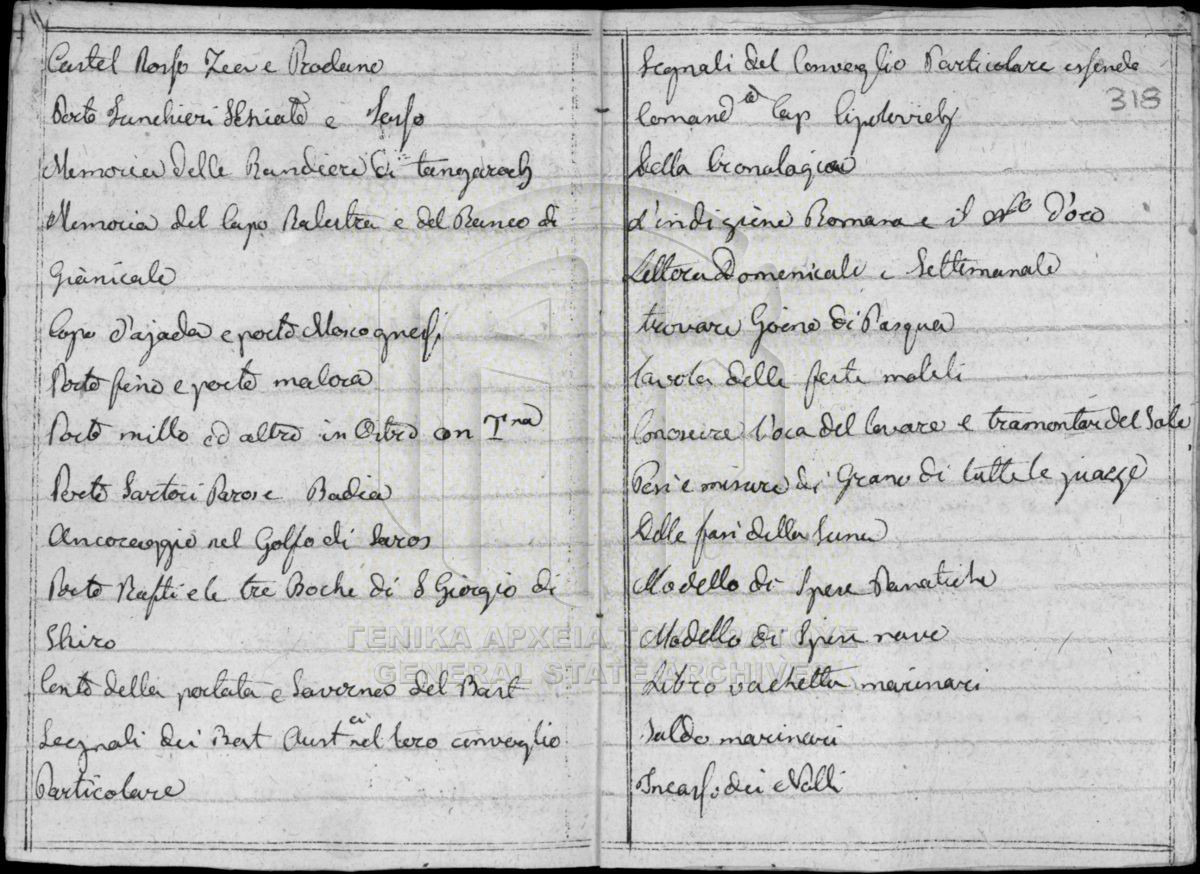 Castel Rosso Zea e Prodano
Porto Junchieri Schiato e Serfo
Memoria delle Bandiere di tangaroch
Memoria del Capo Balestra e del Banco di
Giànicale
Capo d'ajada e porto Moscognesi
Porto fino e porto malora
Porto millo ed altro in Ostro con T.na
Porto Sartori Paros e Badia
Ancoraggio nel Golfo di Saros
Porto Rafti e le tre Boche di S Giorgio di
Shiro
Conto della portata e Saverno del Bast
Segnali dei Bast Aust.ci nel loro convoglio
Particolare
Segnali del Convoglio Particolare essendo
318
Comand.te Cap
Della Cronalagica
L'indizione Romana e il N.ro d'oro
Lettera Domenicale e Settimanale
trovare Giorno di Pasqua
Tavola delle feste mobili
Conoscere l'ora del levare e tramontar del Sole
Pesi e misure di Grano di tutte le piazze
Delle fasi della Luna
Modello di Spese Panatiche
Modello di Spese nave
Libro vachetta marinari
Saldo marinari
Incasso dei Nolli
ΓΕΝΙΚΑ ΑΡΧΕΙΑ ΤΟΥ ΚΡΑΤΟΥΣ
GENERAL STATE ARCHIVES